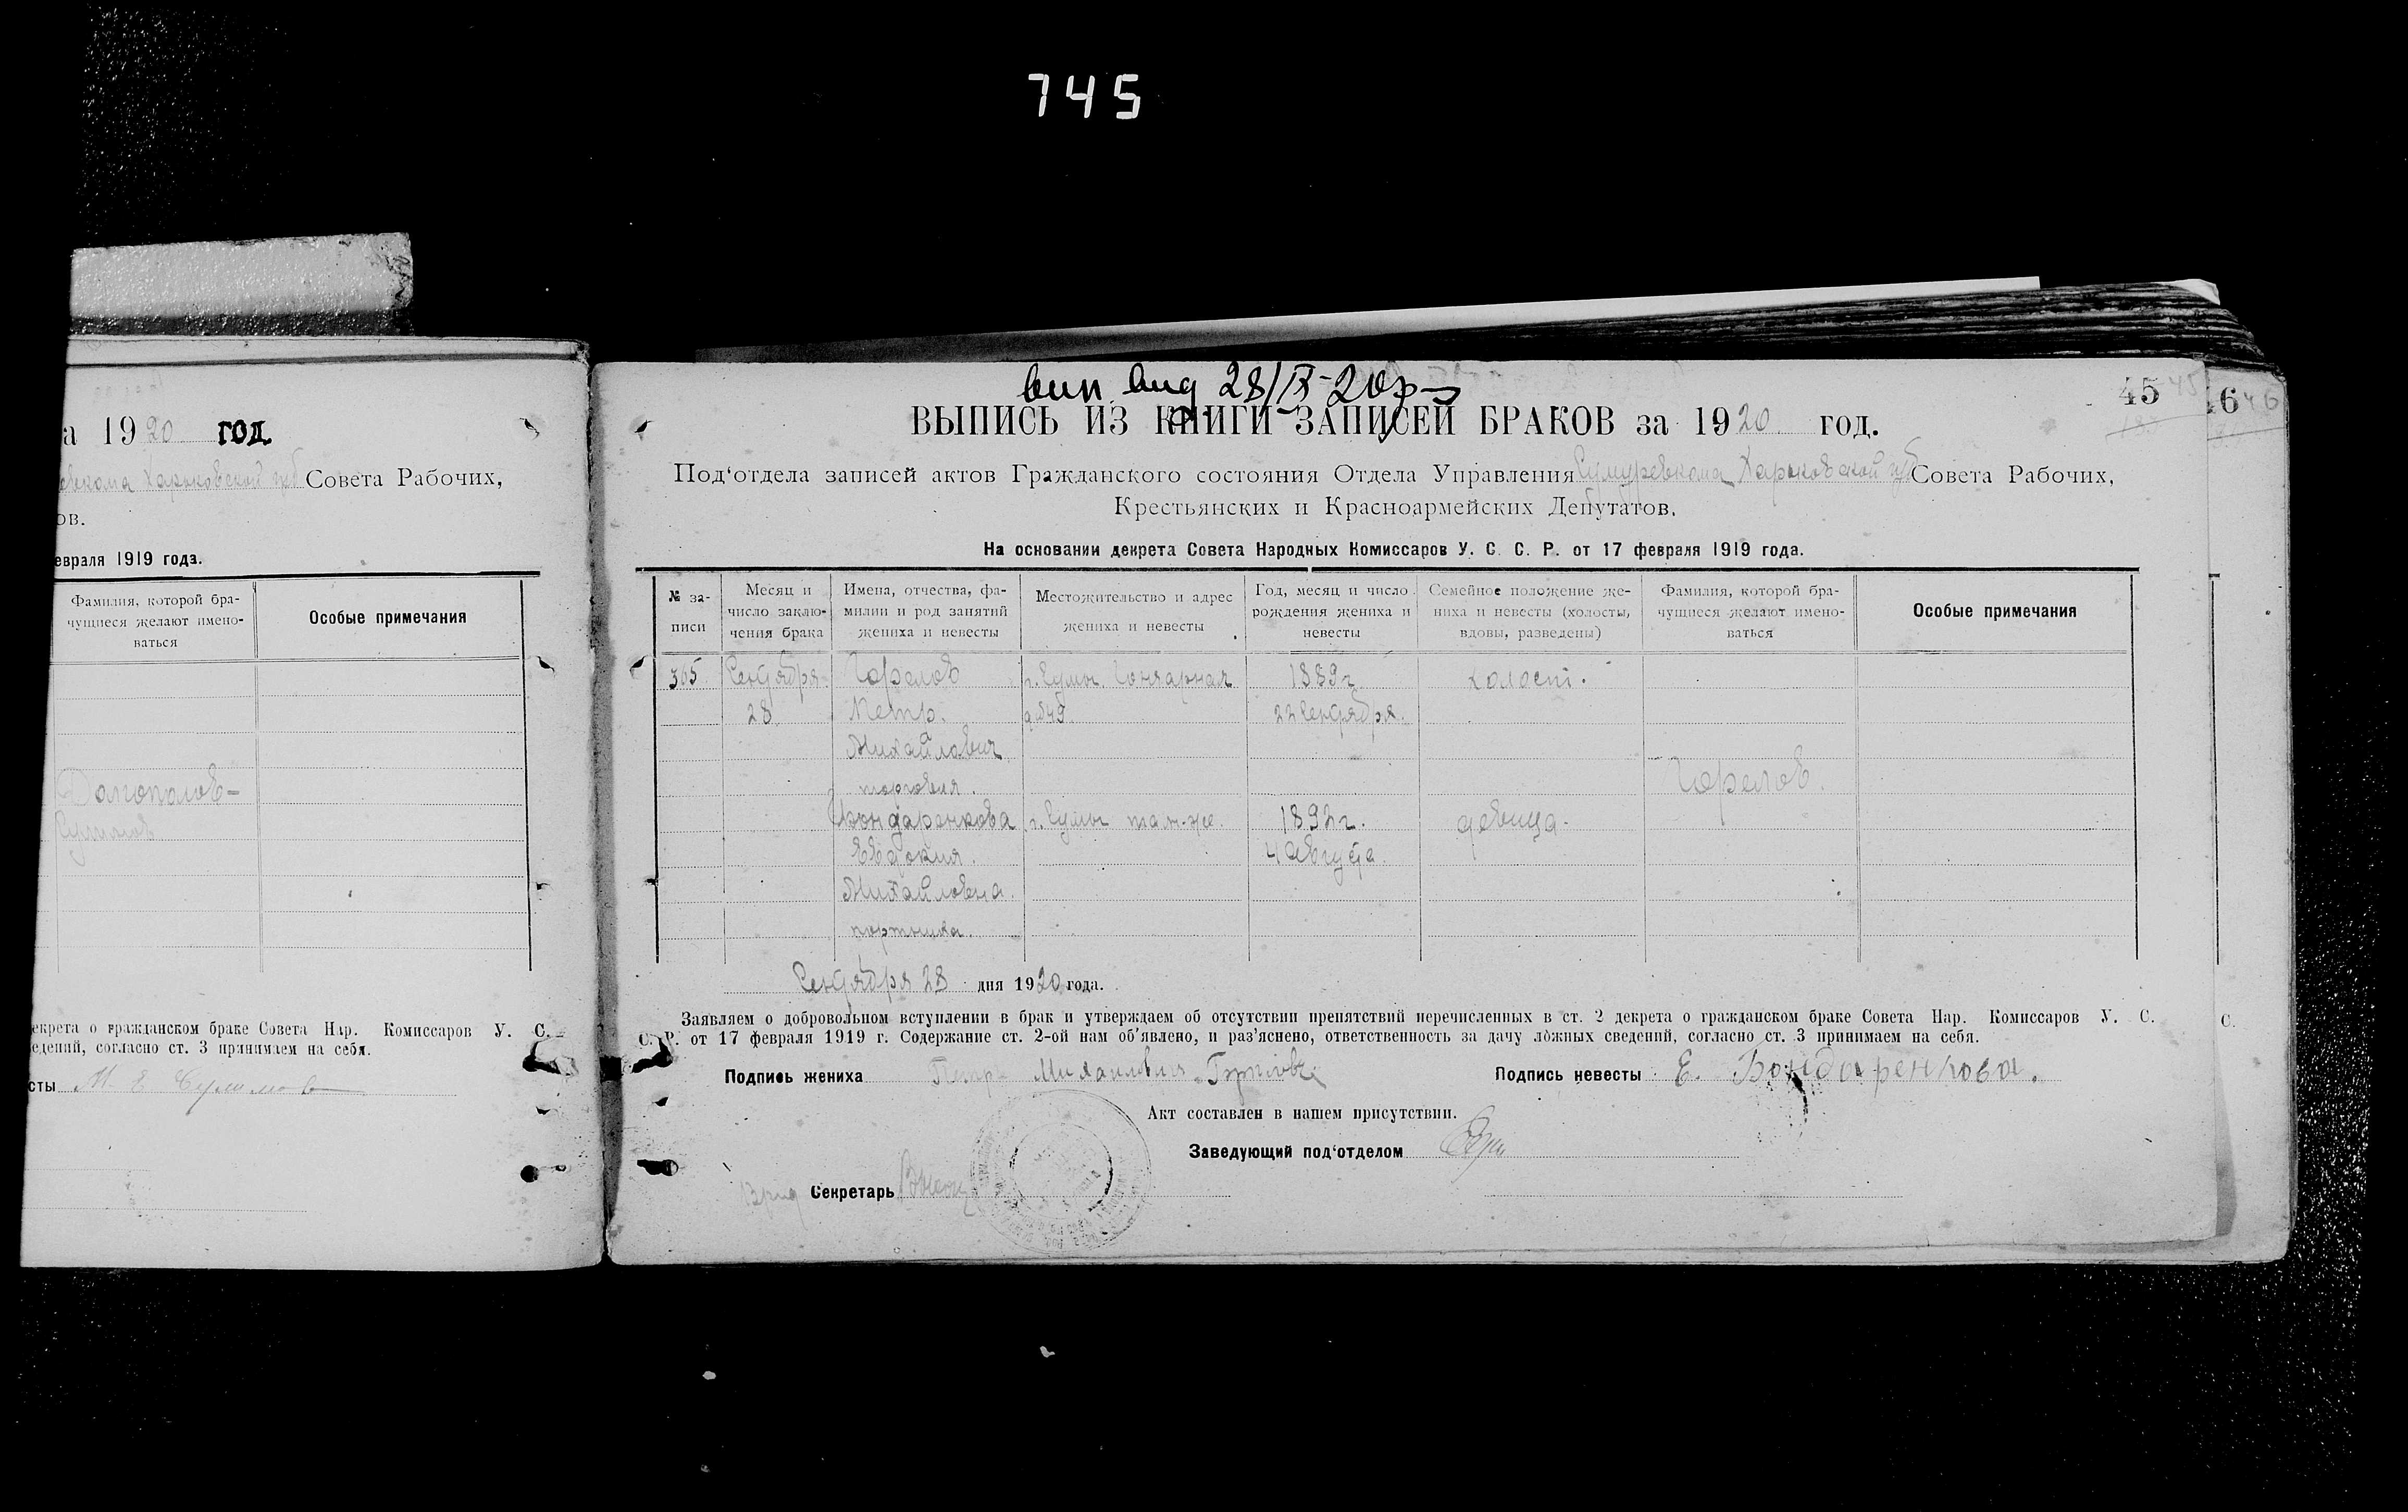 745
а 1920 год
Харьковской губ Совета Рабочих,
ов.
евраля 1919 года.
Фамилия, которой бра-
чущиеся желают имено-
ваться
Особые примечания
Долгополов-
екрета о гражданском браке Совета Нар. Комиссаров У. С.
едений, согласно ст. 3 принимаем на себя.
сты М. Е.
вып. выд 28/IX-20
45 45
46 46
ВЫПИСЬ ИЗ КНИГИ ЗАПИСЕЙ БРАКОВ за 1920 год.
Под'отдела записей актов Гражданского состояния Отдела Управления Сумуревкома Харьковской губ Совета Рабочих,
Крестьянских и Красноармейских Депутатов.
На основании декрета Совета Народных Комиссаров У. С. С. Р. от 17 февраля 1919 года.
№ за-
писи
Месяц и
число заклю-
чения брака
Имена, отчества, фа-
милии и род занятий
жениха и невесты
Местожительство и адрес
жениха и невесты
Год, месяц и число
рождения жениха и
невесты
Семейное положение же-
ниха и невесты (холосты,
вдовы, разведены)
Фамилия, которой бра-
чущиеся желают имено-
ваться
Особые примечания
365 Сентября Горелов г. Сумы. Гончарная 1889 г. холост.
28 Петр. д №49. 22 Сентября.
Михайлович
торговля. Горелов.
Бондаренкова г. Сумы там-же. 1892 г. девица.
Евдокия. 4 Августа.
Михайловна.
портниха.
Сентября 28 дня 1920 года.
Заявляем о добровольном вступлении в брак и утверждаем об отсутствии препятствий перечисленных в ст. 2 декрета о гражданском браке Совета Нар. Комиссаров У. С.
С. Р. от 17 февраля 1919 г. Содержание ст. 2-ой нам об'явлено, и раз'яснено, ответственность за дачу ложных сведений, согласно ст. 3 принимаем на себя.
С.
Подпись жениха Петр Михайлович Подпись невесты Е. Бондаренкова.
Акт составлен в нашем присутствии.
Заведующий под'отделом
Врид Секретарь